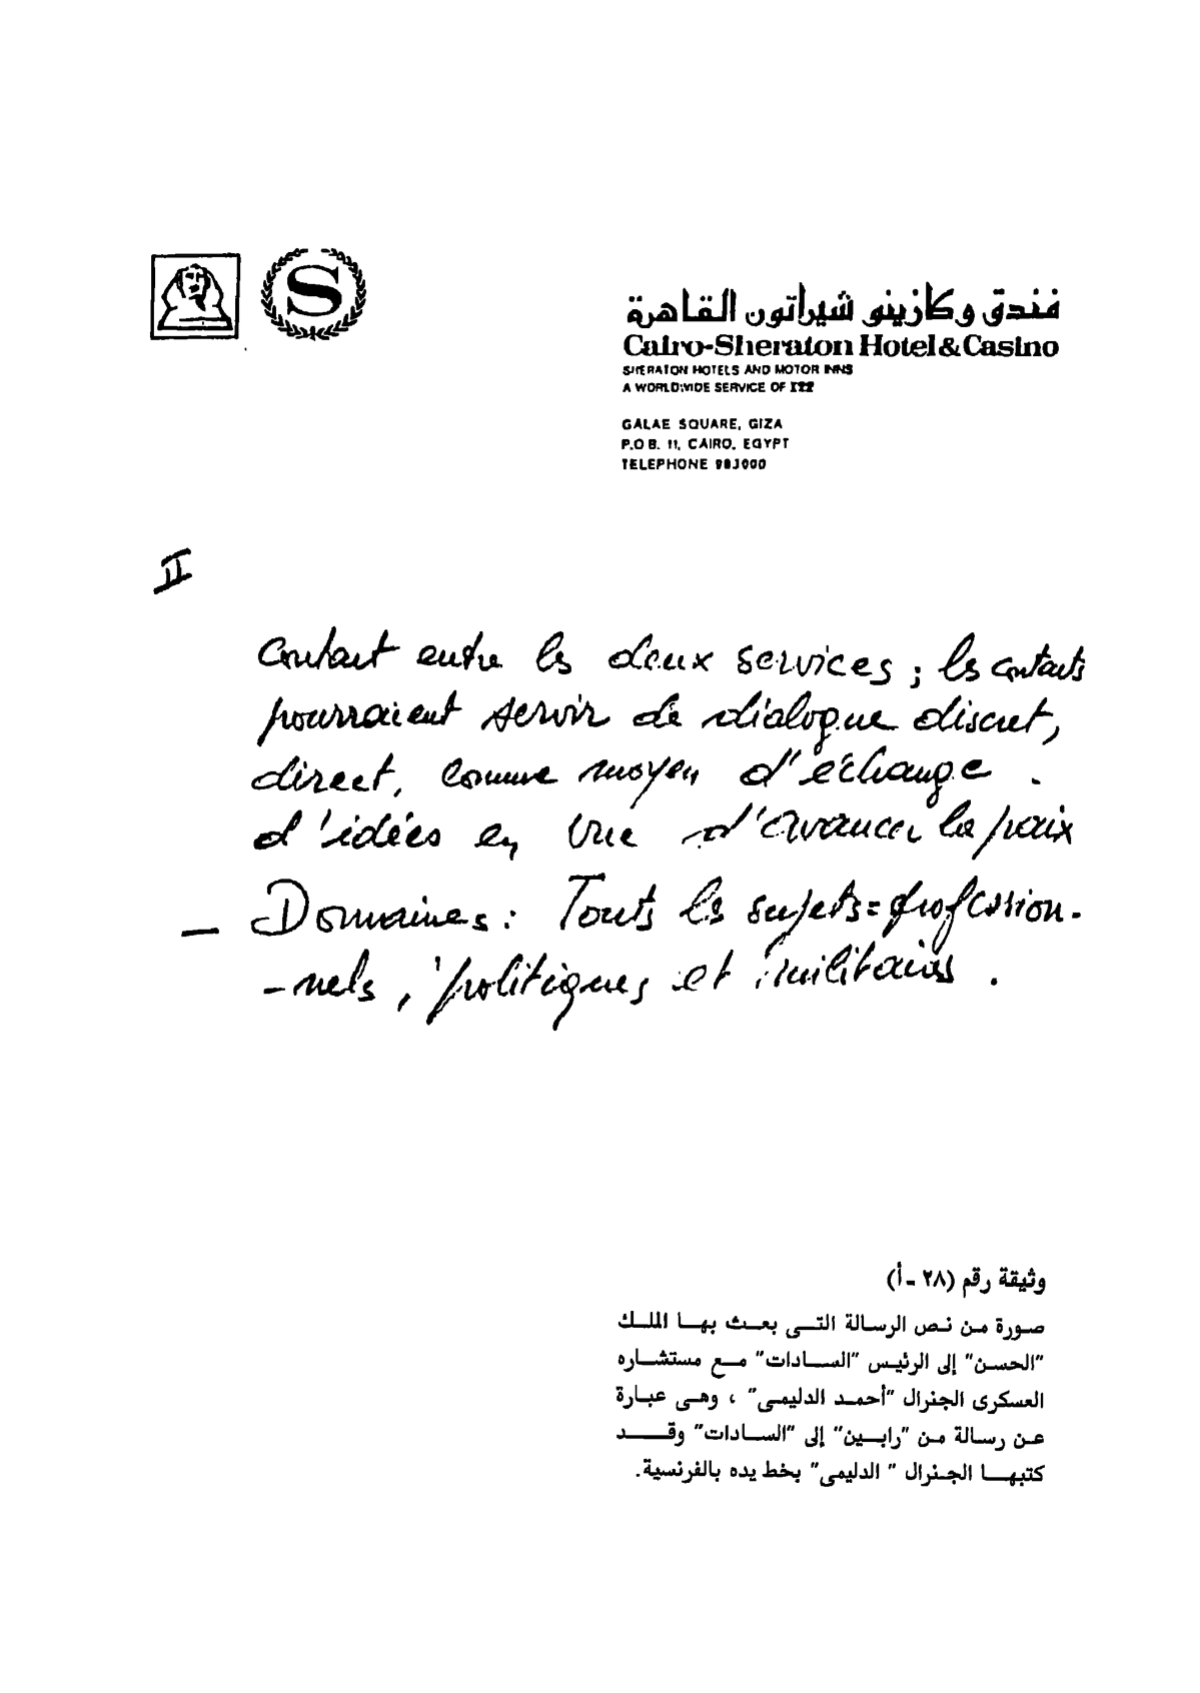 S
فندق وكازينو شيراتون القاهرة
Cairo-Sheraton Hotel & Casino
SHERATON HOTELS AND MOTOR INNS
A WORLDWIDE SERVICE OF ITT
GALAE SQUARE, GIZA
P.O B. 11, CAIRO, EGYPT
TELEPHONE 983000
II
Contact entre les deux services ; les contacts
pourraient servir de dialogue discret,
direct, comme moyen d'échange
d'idées en vue d'avancer la paix
— Domaines : Touts les sujets = profession-
-nels, politiques et militaires.
وثيقة رقم (٢٨ - أ)
صورة من نص الرسالة التى بعث بها الملك
"الحسن" إلى الرئيس "السادات" مع مستشاره
العسكرى الجنرال "أحمد الدليمى" ، وهى عبارة
عن رسالة من "رابين" إلى "السادات" وقد
كتبها الجنرال " الدليمى" بخط يده بالفرنسية.